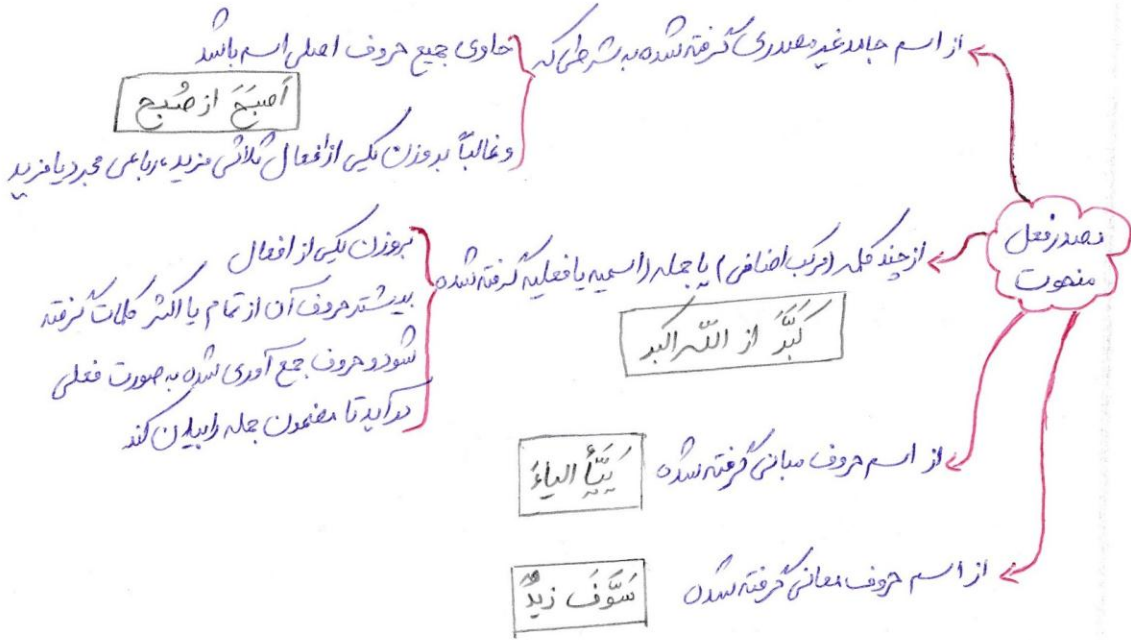 مصدر فعل
منحوت
از اسم جامد غیر مصدری گرفته شده به شرطی که
حاوی جمیع حروف اصلی اسم باشد
أَصبَحَ از صُبح
و غالباً بر وزن یکی از افعال ثلاثی مزید، رباعی مجرد یا مزید
از چند کلمه (مرکب اضافی) یا جمله (اسمیه یا فعلیه گرفته شده
کَبَّرَ از اللّه اکبر
بر وزن یکی از افعال
بیشتر حروف آن از تمام یا اکثر کلمات گرفته
شود و حروف جمع آوری شده به صورت فعلی
درآید تا مضمون جمله را بیان کند
از اسم حروف مبانی گرفته شده
یَیَّأَ الیاءَ
از اسم حروف معانی گرفته شده
سَوَّفَ زیدٌ